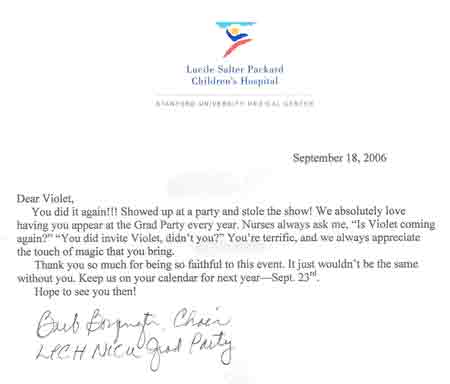 Lucile Salter Packard
Children's Hospital
STANFORD UNIVERSITY MEDICAL CENTER
September 18, 2006
Dear Violet,
You did it again!!! Showed up at a party and stole the show! We absolutely love
having you appear at the Grad Party every year. Nurses always ask me, "Is Violet coming
again?" "You did invite Violet, didn't you?" You're terrific, and we always appreciate
the touch of magic that you bring.
Thank you so much for being so faithful to this event. It just wouldn't be the same
without you. Keep us on your calendar for next year—Sept. 23rd.
Hope to see you then!
Barb Chair
LPCH NICU Grad Party